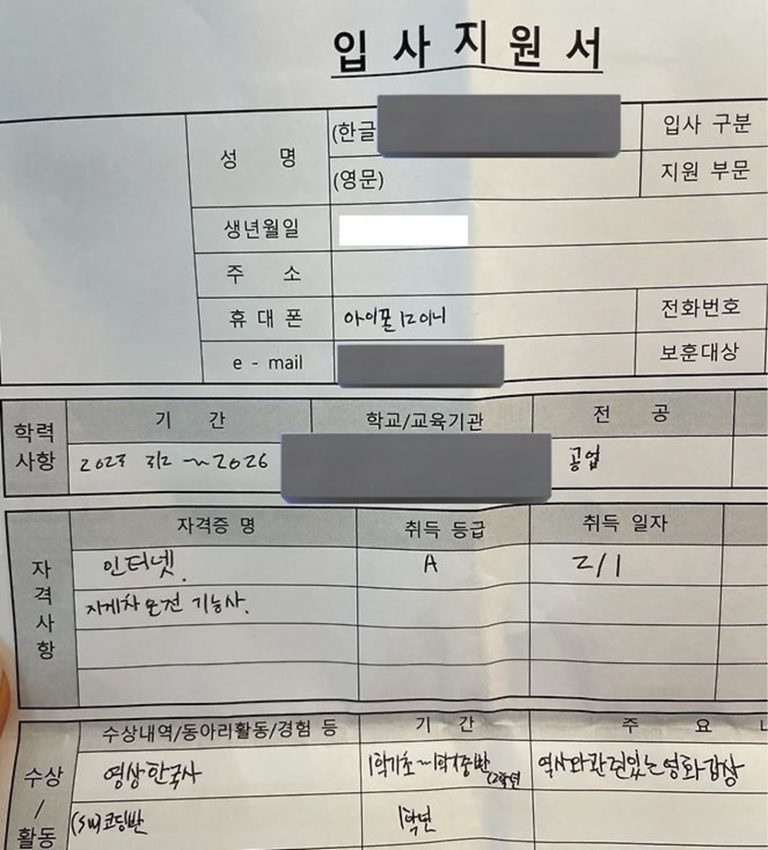 입사지원서
성 명 (한글 입사 구분
(영문) 지원 부문
생년월일
주 소
휴대폰 아이폰12미니 전화번호
e - mail 보훈대상
학력사항 기 간 학교/교육기관 전 공
2023 3/2 ~ 2026 공업
자격사항 자격증 명 취득 등급 취득 일자
인터넷. A 2/1
지게차운전 기능사.
수상/활동 수상내역/동아리활동/경험 등 기 간 주 요
영상한국사 1학기초~1학기중반 (2학년 역사와관련있는영화감상
(SW코딩반 1학년